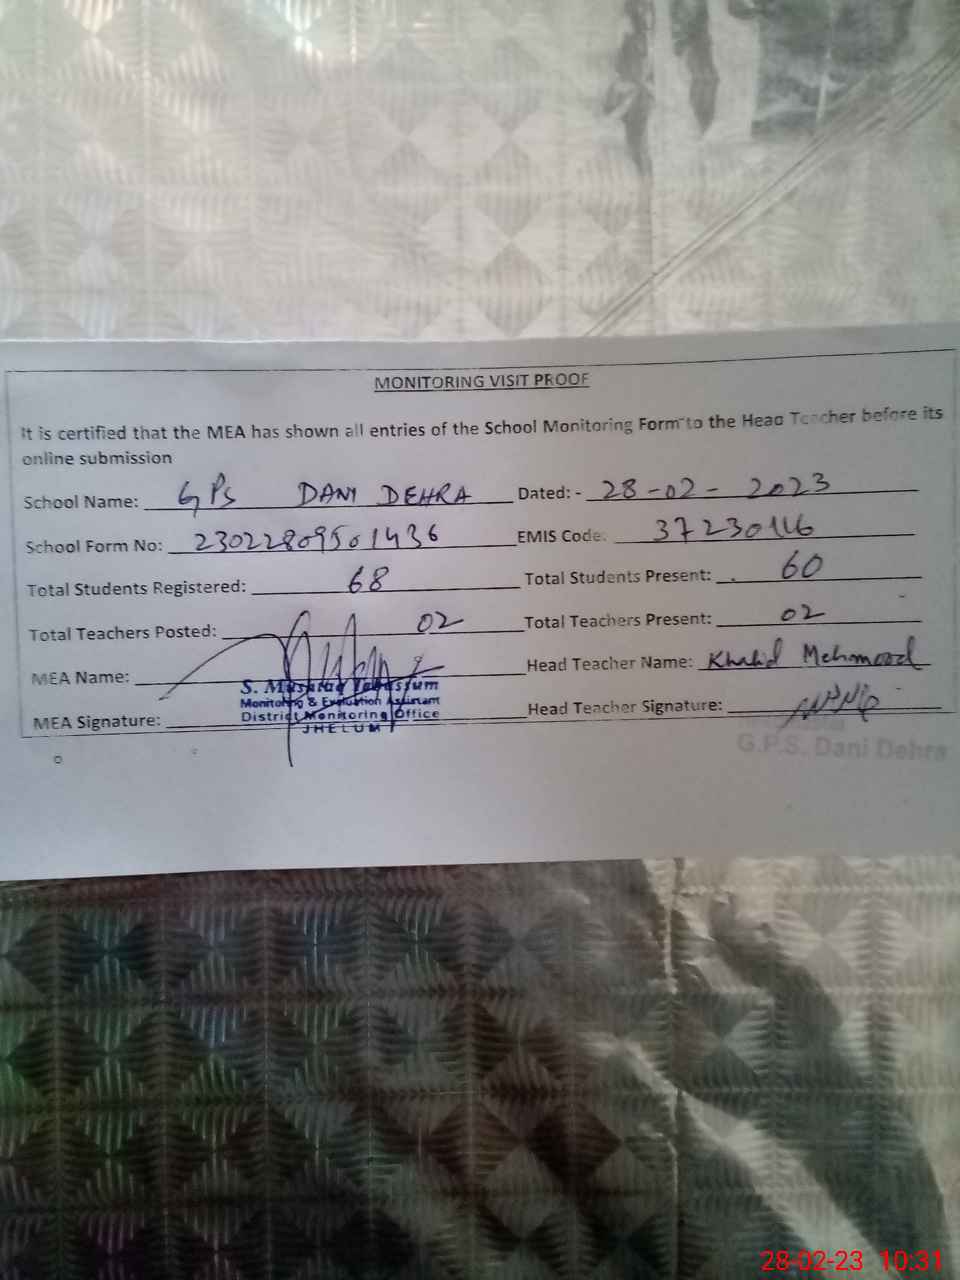 MONITORING VISIT PROOF
It is certified that the MEA has shown all entries of the School Monitoring Form to the Head Teacher before its
online submission
School Name: GPS DANI DEHRA Dated: - 28-02-2023
School Form No: 23022809501436 EMIS Code: 37230116
Total Students Registered: 68 Total Students Present: 60
Total Teachers Posted: 02 Total Teachers Present: 02
MEA Name: Head Teacher Name: Khalid Mehmood
S. Mushtaq Tabassum
Monitoring & Evaluation Assistant
District Monitoring Office
JHELUM
MEA Signature: Head Teacher Signature:
G.P.S. Dani Dehra
28-02-23 10:31